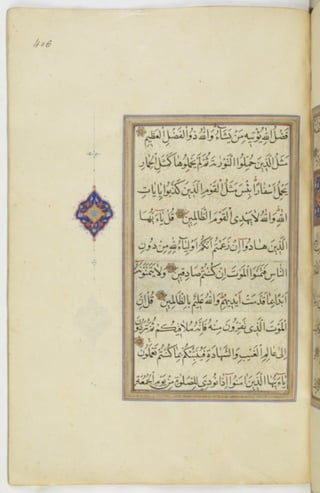 406
فَضْلُ اللهِ يُؤْتِيهِ مَنْ يَشَاءُ وَاللهُ ذُو الْفَضْلِ الْعَظِيمِ
مَثَلُ الَّذِينَ حُمِّلُوا التَّوْرٰيةَ ثُمَّ لَمْ يَحْمِلُوهَا كَمَثَلِ الْحِمَارِ
يَحْمِلُ اَسْفَارًا بِئْسَ مَثَلُ الْقَوْمِ الَّذِينَ كَذَّبُوا بِاٰيَاتِ
اللهِ وَاللهُ لَا يَهْدِى الْقَوْمَ الظَّالِمِينَ قُلْ يَاءَيُّهَا
الَّذِينَ هَادُوا اِنْ زَعَمْتُمْ اَنَّكُمْ اَوْلِيَاءُ لِلّٰهِ مِنْ دُونِ
النَّاسِ فَتَمَنَّوُا الْمَوْتَ اِنْ كُنْتُمْ صَادِقِينَ وَلَا يَتَمَنَّوْنَهُ
اَبَدًا بِمَا قَدَّمَتْ اَيْدِيهِمْ وَاللهُ عَلِيمٌ بِالظَّالِمِينَ قُلْ اِنَّ
الْمَوْتَ الَّذِى تَفِرُّونَ مِنْهُ فَاِنَّهُ مُلَاقِيكُمْ ثُمَّ تُرَدُّونَ
اِلٰى عَالِمِ الْغَيْبِ وَالشَّهَادَةِ فَيُنَبِّئُكُمْ بِمَا كُنْتُمْ تَعْمَلُونَ
يَاءَيُّهَا الَّذِينَ اٰمَنُوا اِذَا نُودِىَ لِلصَّلٰوةِ مِنْ يَوْمِ الْجُمُعَةِ